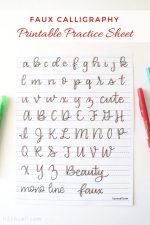 FAUX CALLIGRAPHY
Printable Practice Sheet
a b c d e f g h i j k
l m n o p q r s t
u v w x y z cute
A B C D E F G H
I J K L M N O P
Q R S T U V W
X Y Z Beauty
mono line faux